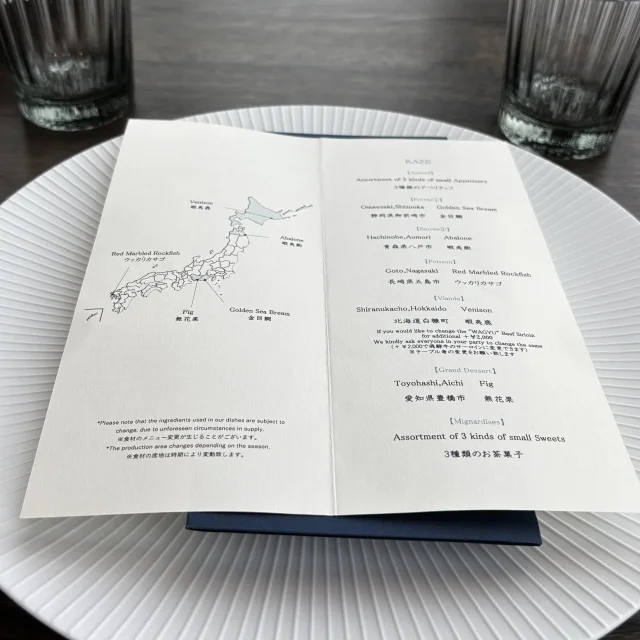 Venison
蝦夷鹿
Abalone
蝦夷鮑
Red Marbled Rockfish
ウッカリカサゴ
Fig
無花果
Golden Sea Bream
金目鯛
*Please note that the ingredients used in our dishes are subject to
change, due to unforeseen circumstances in supply.
※食材のメニュー変更が生じることがございます。
*The production area changes depending on the season.
※食材の産地は時期により変動致します。
KAZE
Assortment of 3 kinds of small Appetizers
3種類のアペリティフ
Omaezaki,Shizuoka Golden Sea Bream
静岡県御前崎市 金目鯛
Hachinohe,Aomori Abalone
青森県八戸市 蝦夷鮑
【Poisson】
Goto,Nagasaki Red Marbled Rockfish
長崎県五島市 ウッカリカサゴ
【Viande】
Shiranukacho,Hokkaido Venison
北海道白糠町 蝦夷鹿
If you would like to change the "WAGYU" Beef Sirloin
for additional +￥2,000
We kindly ask everyone in your party to change the same
(+￥2,000で飛騨牛のサーロインに変更できます)
※テーブル毎の変更をお願い致します
【Grand Dessert】
Toyohashi,Aichi Fig
愛知県豊橋市 無花果
【Mignardises】
Assortment of 3 kinds of small Sweets
3種類のお茶菓子